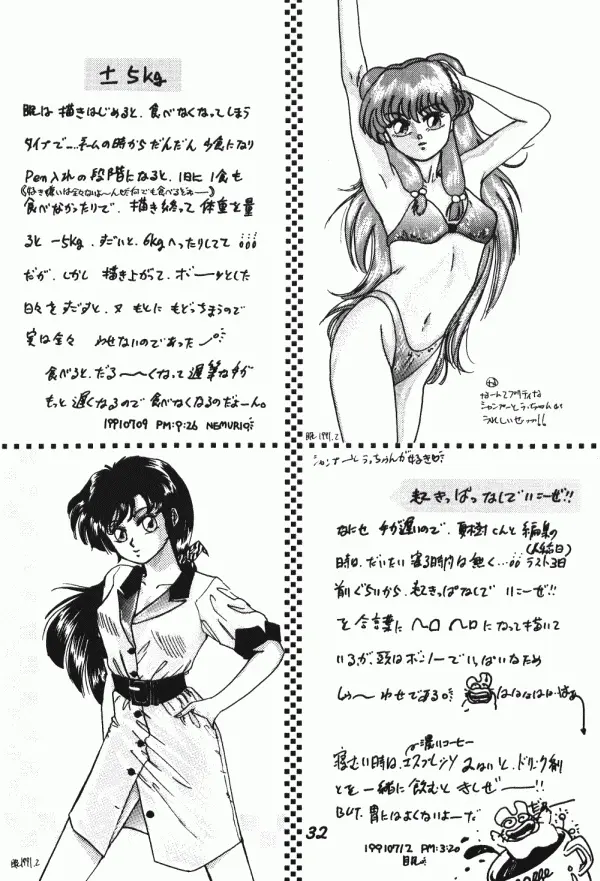 ±5kg
眠は 描きはじめると、食べなくなってしまう
タイプで…ネームの時からだんだん 少食になり
Pen入れの段階になると、1日に 1食も
食べなかったりで、描き終って 体重を量
ると -5kg、すごいと、6kgへったりしてて
だが、しかし 描き上がって、ボーーッとした
日々を すごすと、又 もとに もどっちまうので
実は全々
食べると、だる〜〜くなって 遅筆な
もっと 遅くなるので 食べなくなるのだよーん。
19910709 PM:9:26 NEMURIQ
なーんてプリティな
シャンプーとらっちゃん
うれしいぜっ!!
眠 1991.2
シャンプーとらっちゃんが好きだ
起きっぱなしで いこーぜ!!
なにせ 手が遅いので、夏樹くんと 編集の
日和、だいたい 寝る時間は無く…
ラスト3日
前ぐらいから、起きっぱなしで いこーぜ!!
を 合言葉に ヘロ ヘロ になって 描いて
いるが、頭は ボンノーで いっぱいなため
しゅ〜 わせである。
はははははは
濃いコーヒー
寝むい時は、エスプレッソ のないと、ドリンク剤
とを 一緒に 飲むと きしぜーー!!
BUT、胃にはよくないよーだ
19910712 PM:3:20
眠
32
眠 1991.2